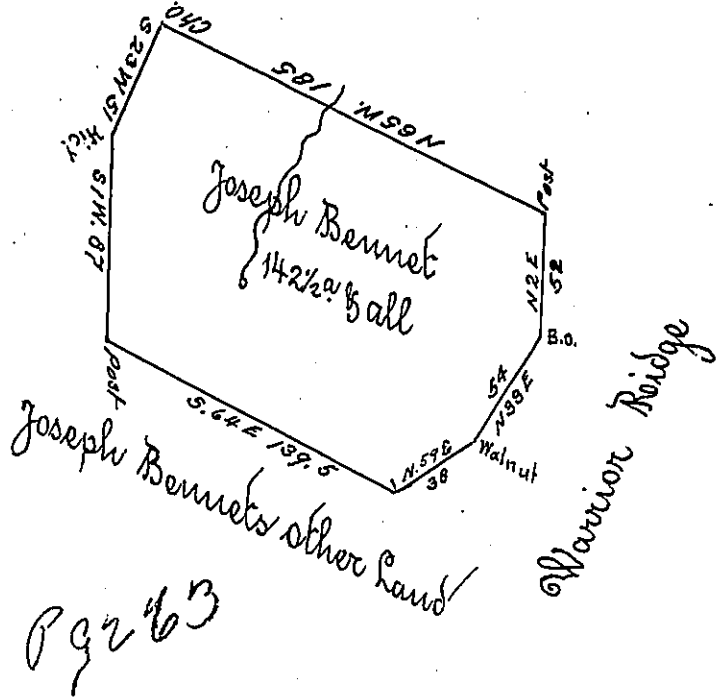 Cho.
S 23 W 51
Hic.y
S 1 W. 87
Post
N 65 W. 185
Post
N 2 E
52
B.O.
54
N 39 E
Walnut
N. 59 E
38
S. 64 E 139.5
Joseph Bennet
142½ a & all
Joseph Bennets other Land
Warrior Ridge